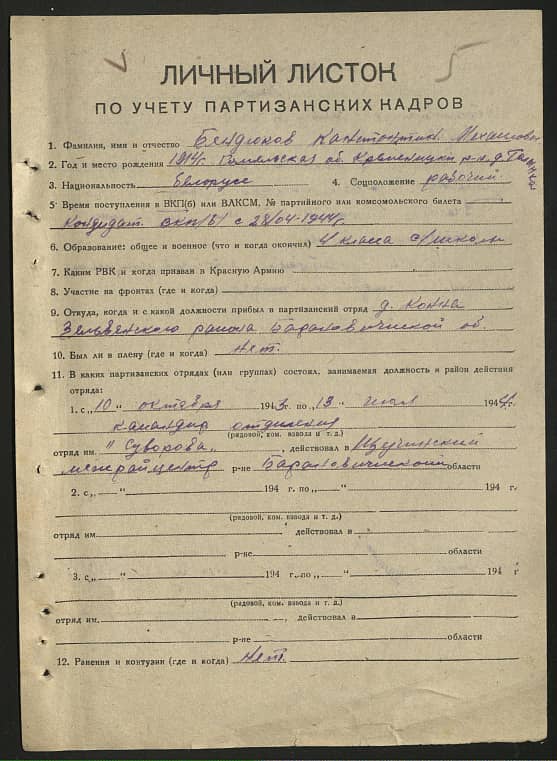 ЛИЧНЫЙ ЛИСТОК
ПО УЧЕТУ ПАРТИЗАНСКИХ КАДРОВ
1. Фамилия, имя и отчество Бендюков Канстантин Михайлович
2. Год и место рождения 1914г. Гомельская об.
3. Национальность белорусс 4. Соцположение рабочий
5. Время поступления в ВКП(б) или ВЛКСМ, № партийного или комсомольского билета
Кондидат. с 28/04-1944г
6. Образование: общее и военное (что и когда окончил) 4 класа с/школы
7. Каким РВК и когда призван в Красную Армию
8. Участие на фронтах (где и когда)
9. Откуда, когда и с какой должности прибыл в партизанский отряд д. Конна
Зельвенского района Барановичиской об.
10. Был ли в плену (где и когда) Нет.
11. В каких партизанских отрядах (или группах) состоял, занимаемая должность и район действия
отряда:
1. с „10 " октября 1943г. по „13 " июл 1944г.
камандир отделения
(рядовой, ком. взвода и т. д.)
отряд им. "Суворова„ , действовал в Щучинский
межрайцентр р-не Барановичиской области
2. с„ " 194 г. по „ " 194 г.
(рядовой, ком. взвода и т. д.)
отряд им. действовал в
р-не области
3. с„ " 194 г. по „ " 194 г
(рядовой, ком. взвода и т. д.)
отряд им. , действовал в
р-не области
12. Ранения и контузии (где и когда) Нет.